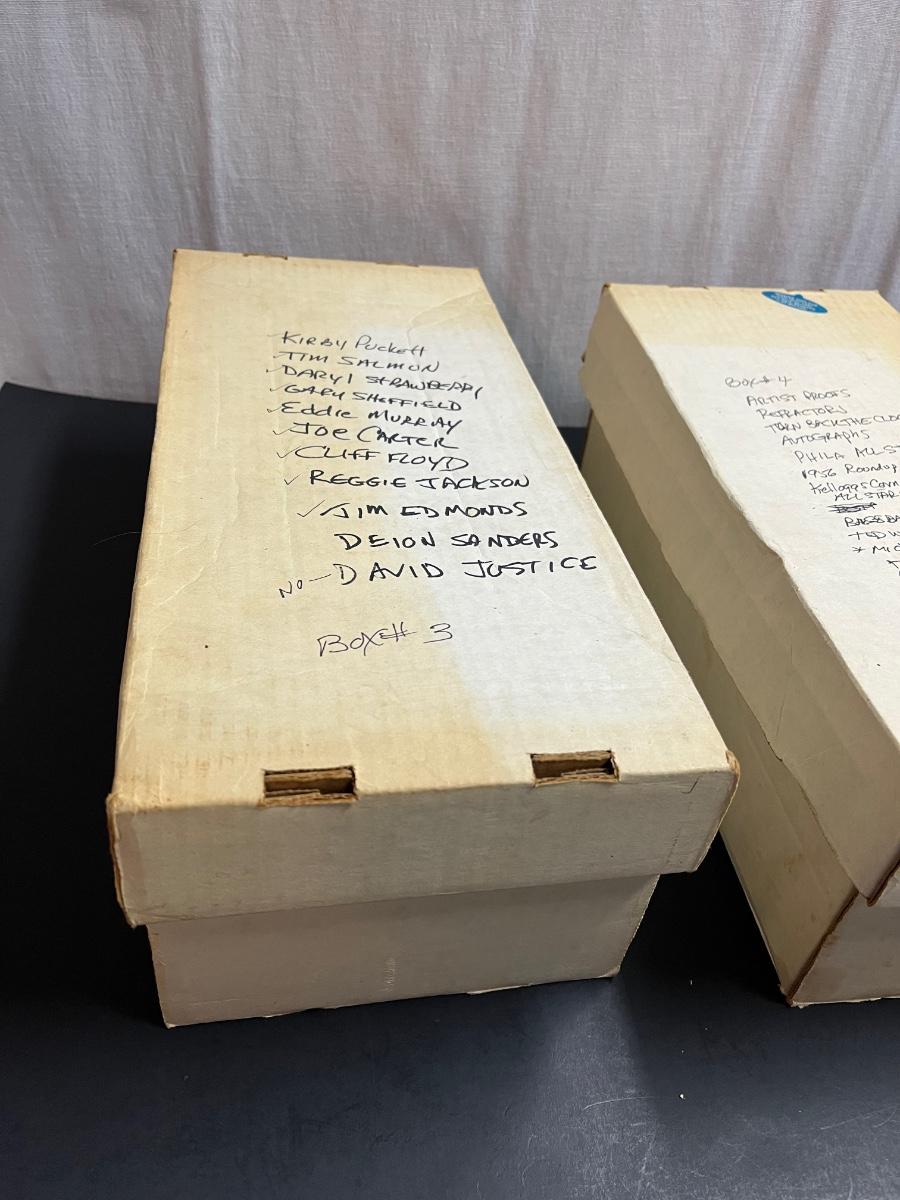 ✓KIRBY PUCKETT
✓TIM SALMON
✓DARYL STRAWBERRY
✓GARY SHEFFIELD
✓Eddie MURRAY
✓JOE CARTER
✓CLIFF FLOYD
✓REGGIE JACKSON
✓JIM EDMONDS
DEION SANDERS
NO—DAVID JUSTICE
BOX# 3
BOX# 4
ARTIST PROOFS
REFRACTORS
TURN BACK THE CLO
AUTOGRAPHS
PHILA ALL S
1956 Roundup
Kelloggs Corn
ALL STAR
BASEBA
TED W
* MIC